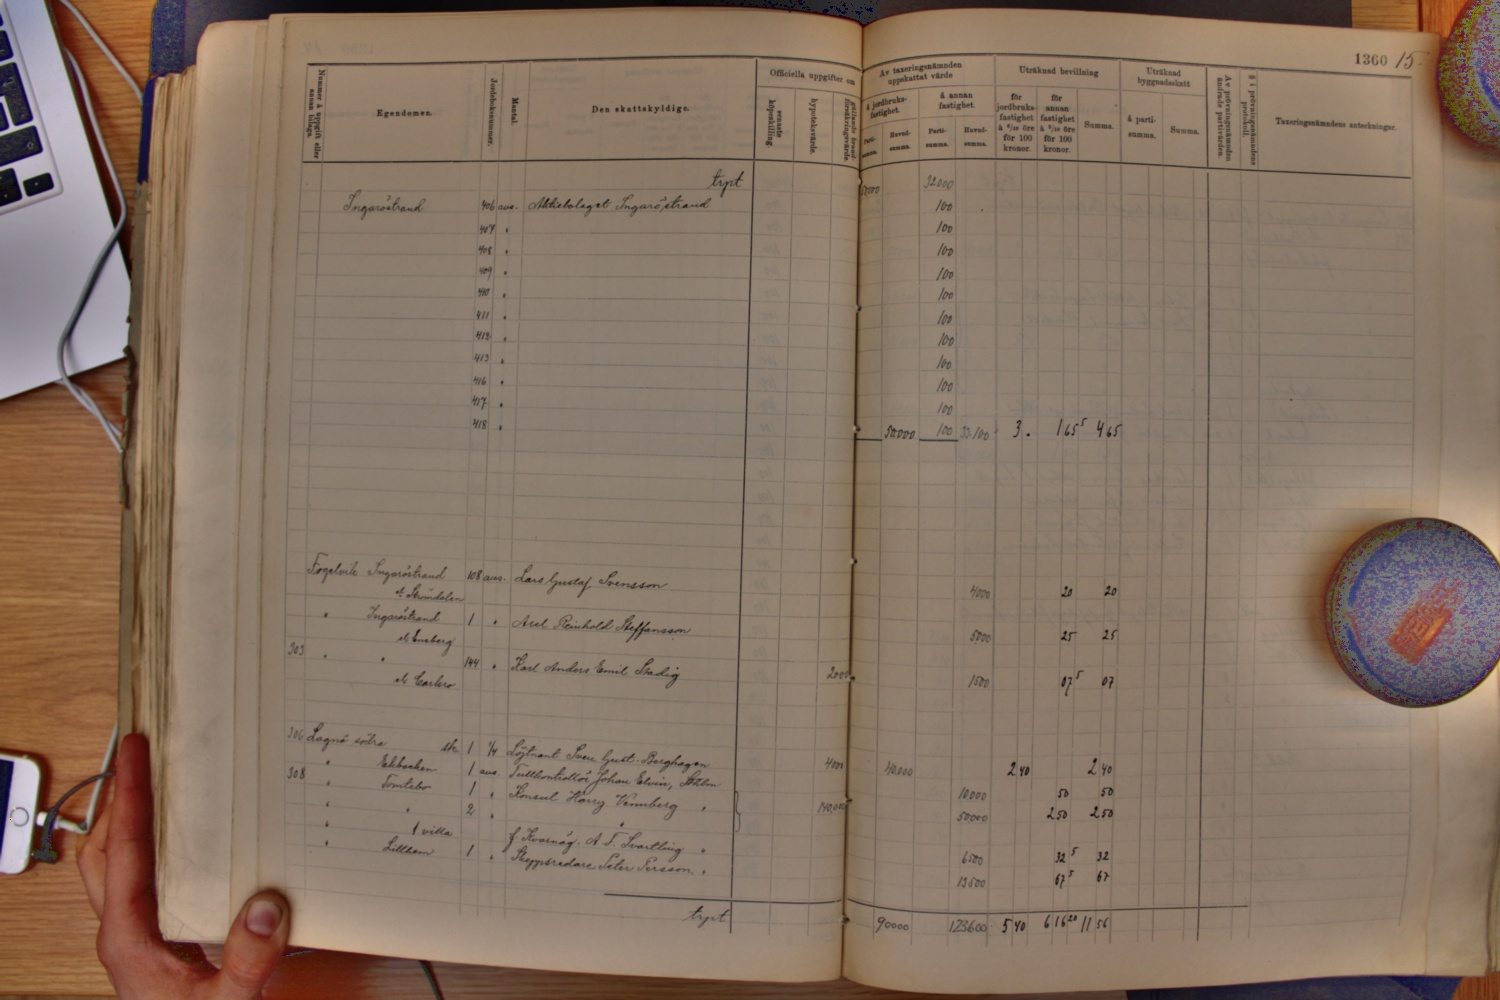 1360 15
Nummer å uppgift eller annan bilaga.
Egendomen.
Jordeboksnummer.
Mantal.
Den skattskyldige.
Officiella uppgifter om
senaste köpeskilling.
hypoteksvärde.
gällande brandförsäkringsvärde.
Av taxeringsnämnden uppskattat värde
å jordbruksfastighet.
å annan fastighet.
Partisumma.
Huvudsumma.
Partisumma.
Huvudsumma.
Uträknad bevillning
för jordbruksfastighet å 6/10 öre för 100 kronor.
för annan fastighet å 5/10 öre för 100 kronor.
Summa.
Uträknad byggnadsskatt
å partisumma.
Summa.
Av prövningsnämnden ändrade partivärden.
§ i prövningsnämndens protokoll.
Taxeringsnämndens anteckningar.
trpt 32000
Ingaröstrand 406 avs. Aktiebolaget Ingaröstrand 100
407 " 100
408 " 100
409 " 100
410 " 100
411 " 100
412 " 100
413 " 100
416 " 100
417 " 100
418 " 50000 100 33100 3. 165 5 465
Fogelvik Ingaröstrand 108 avs. Lars Gustaf Svensson 4000 20 20
" Ingaröstrand 1 " Axel Reinhold Steffansson 5000 25 25
303 " " 144 " Karl Anders Emil Stadig 2000 1500 07 5 07
306 Lagnö södra 1 1/4 Löjtnant Sven Gust. Berghagen 4000 40.000 2 40 2 40
" Ekbacken 1 avs. Tullkontrollör Johan Elvin, Sthlm 10.000 50 50
308 " Tomtebo 1 " Konsul Harry Vennberg " 140,000 50000 2 50 2 50
" " 2 " "
" 1 villa f. Kvarnäg. A. F. Svartling " 6500 32 5 32
" Lillhem 1 " Skeppsredare Peter Persson " 13500 67 5 67
trpt 90000 123600 5 40 6 16 20 11 56